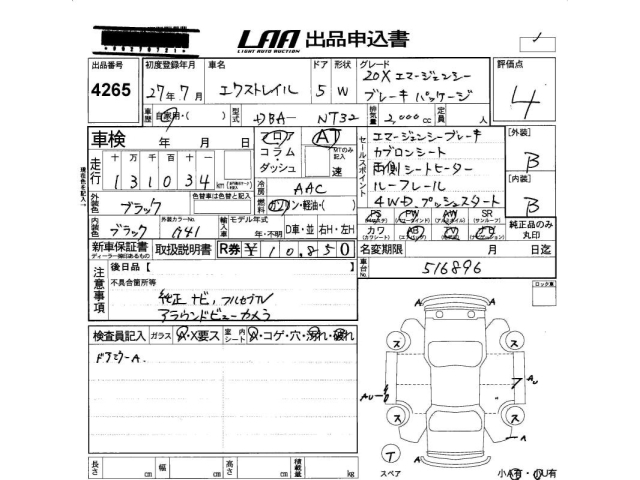 LAA 出品申込書
LIGHT AUTO AUCTION
出品番号 初度登録年月 車名 ドア 形状 グレード 評価点
4265 27年7月 エクストレイル 5 W 20X エマージェンシー ブレーキ パッケージ 4
車歴 自家用・( ) 型式 DBA- NT32 排気量 2,000cc 定員 人
車検 年 月 日
ロア コラム・ダッシュ AT MTのみ記入 速
走行 十 万 千 百 十
1 3 1 0 3 4 km
冷房 AAC
燃料 ガソリン・軽油・( )
外装色 ブラック 色替車は色替と記入
内装色 ブラック 外装カラーNo. G41 輸入車 モデル年式 年・不明 D車・並 右H・左H
セールスポイント
エマージェンシーブレーキ
カブロンシート
両側シートヒーター
ルーフレール
4WD プッシュスタート
PS PW AW SR
カワ AB TV ナビ
[外装] B
[内装] B
純正品のみ丸印
新車保証書 取扱説明書 R券 ¥10,850 名変期限 月 日迄
ディーラー印のあるもの
車台No. 516896
注意事項
後日品【
不具合箇所等
純正ナビ,フルセグTV
アラウンドビューカメラ
ロック車
検査員記入 ガラス A・X要ス 室内シート A・コゲ・穴・汚れ・破れ
ドアミラーA.
A
ス ス
AU AU
ス ス
A
A
T
スペア
小A有・小U有
長さ cm 幅 cm 高さ cm 積載量 kg